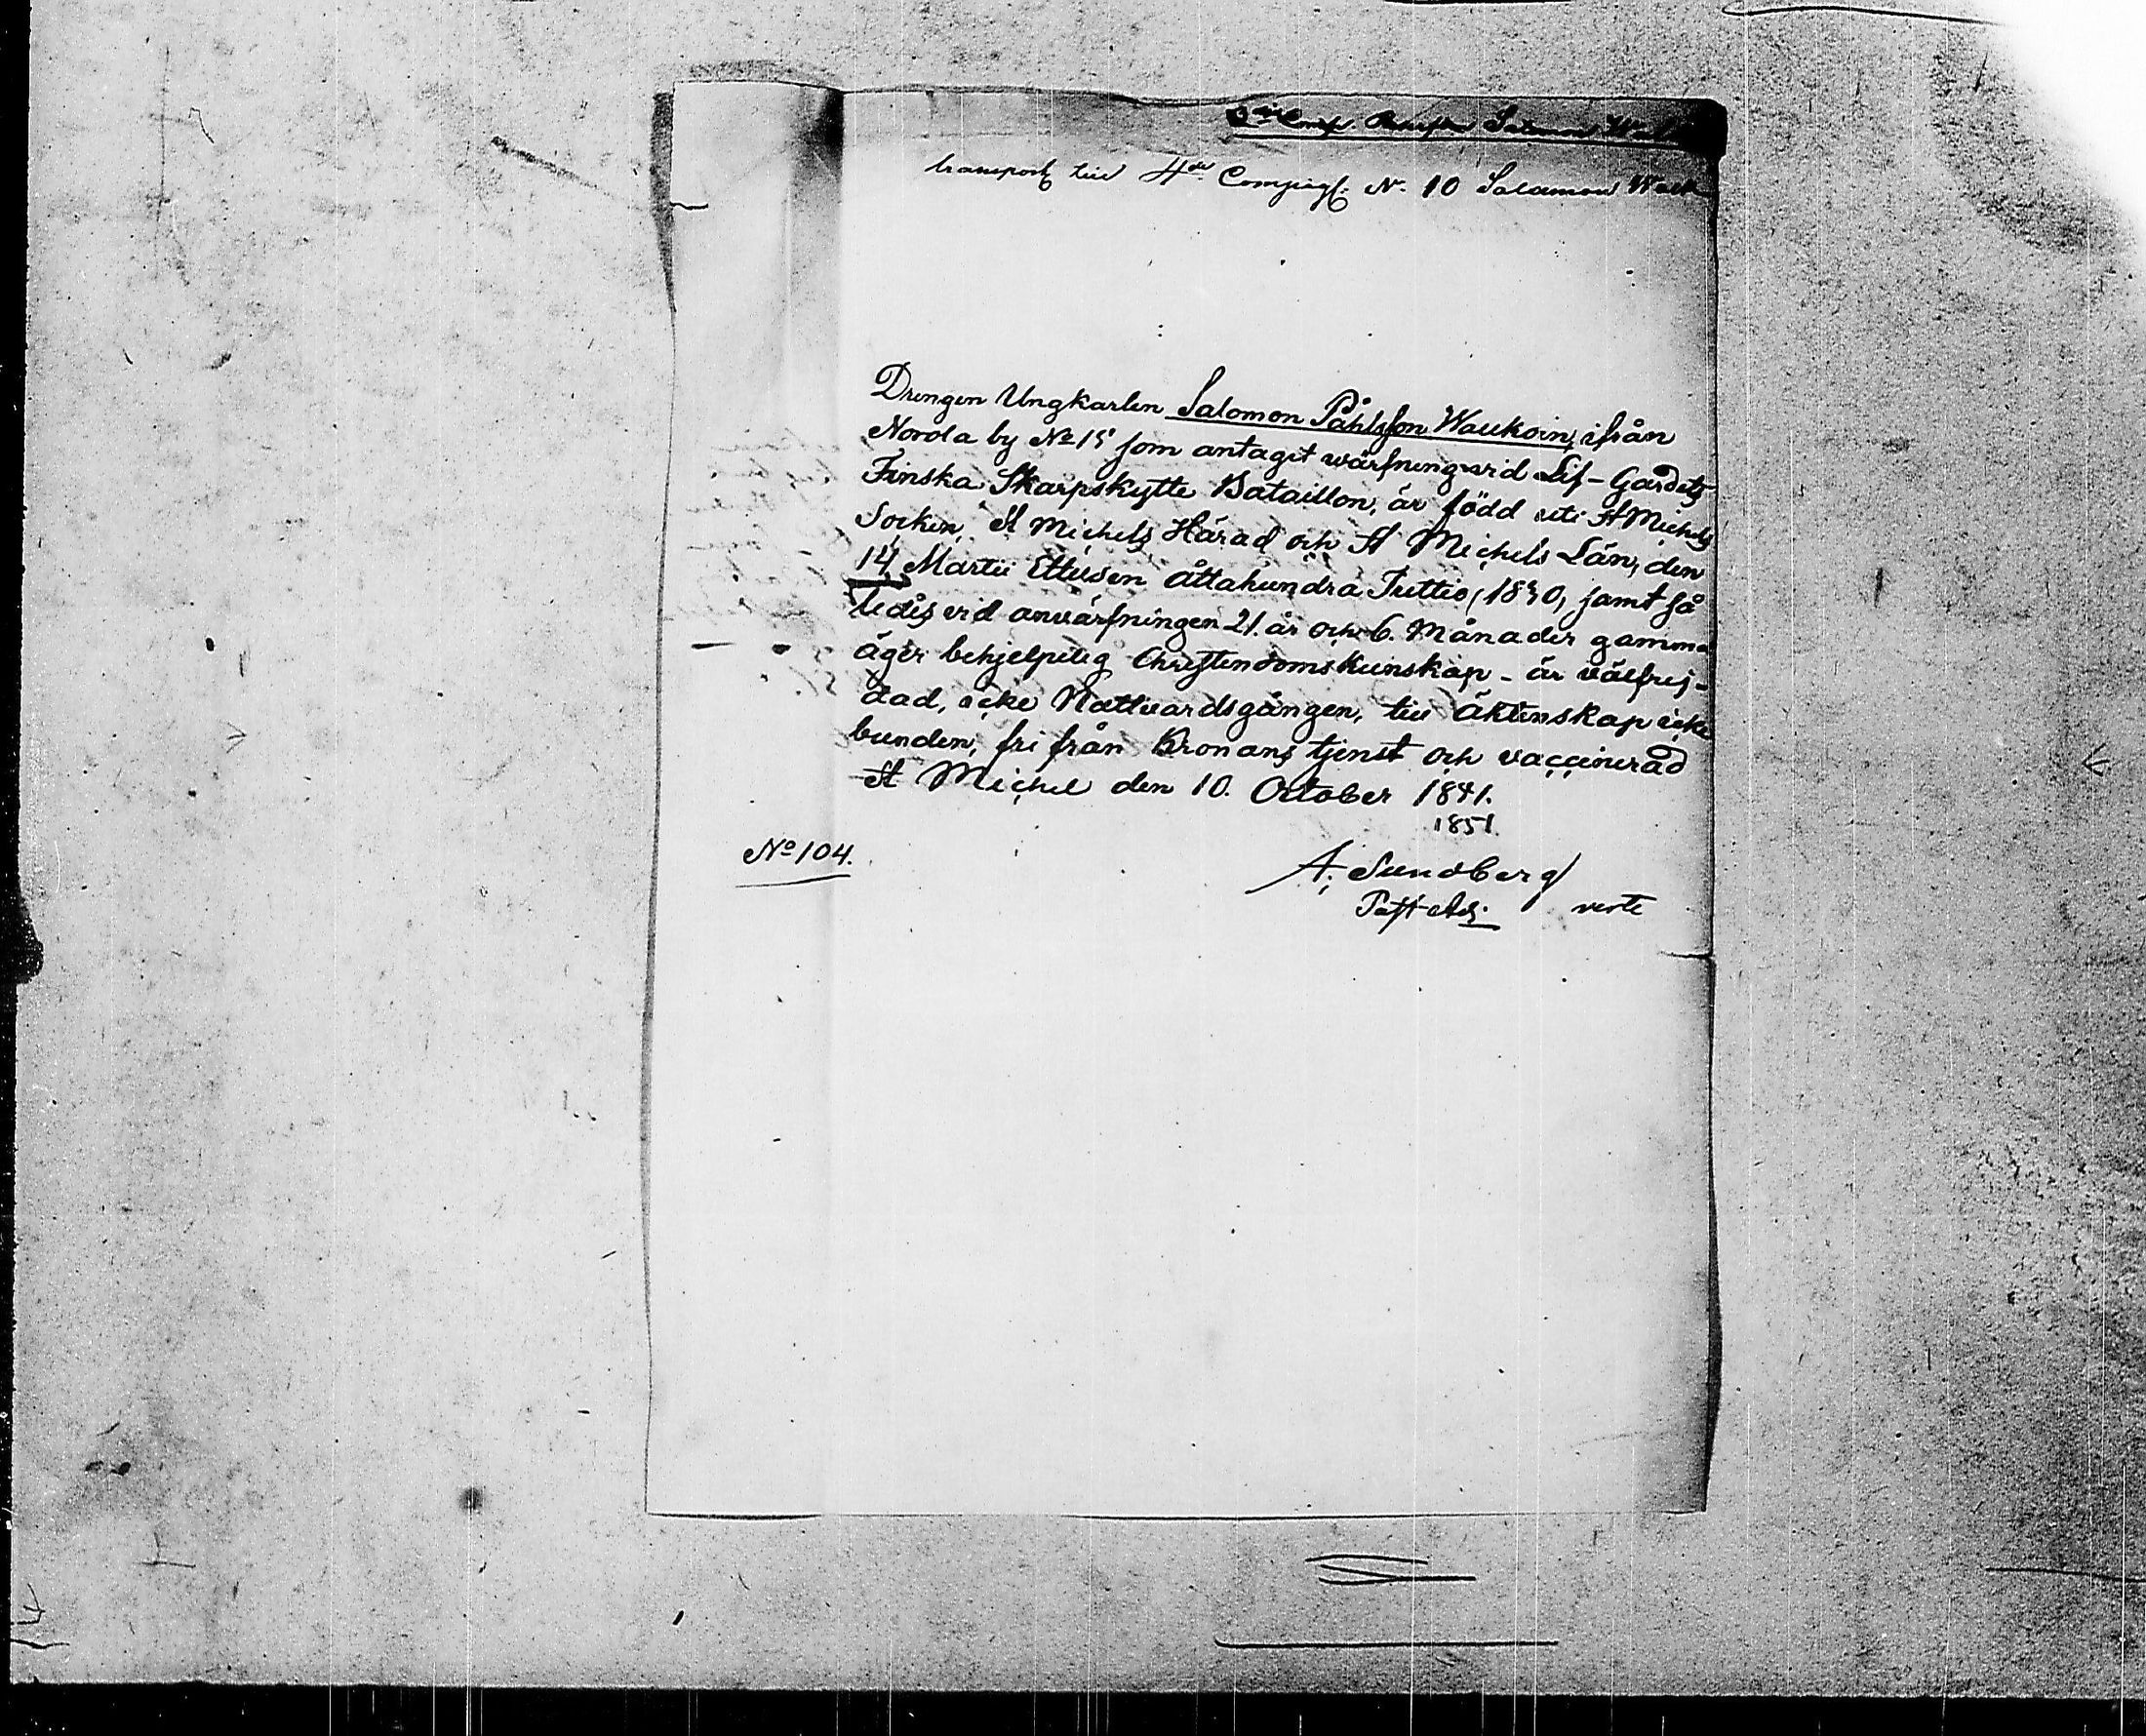 Salomon
transport till 4de Compagt. No. 10 Salamon Walk
Drengen Ungkarlen Salomon Påhlsson Waukoin, ifrån
Norola by No 15 som antagit wärfning vid Lif-Gardets
Finska Skarpskytte Bataillon, är född uti St Michels
Socken, St Michels Härad och St Michels Län, den
14 Martii Ettusen åttahundra Trettio (1830) samt så
ledes vid anvärfningen 21. år och 6. Månader gammal
äger behjelpelig Christendomskunskap - är välfrej-
dad, icke Nattvardsgången, till äktenskap icke
bunden, fri från Kronans tjenst och vaccinerad
St Michel den 10. October 1841.
1851.
No 104.
A. Sundberg
Past. Adj. verte